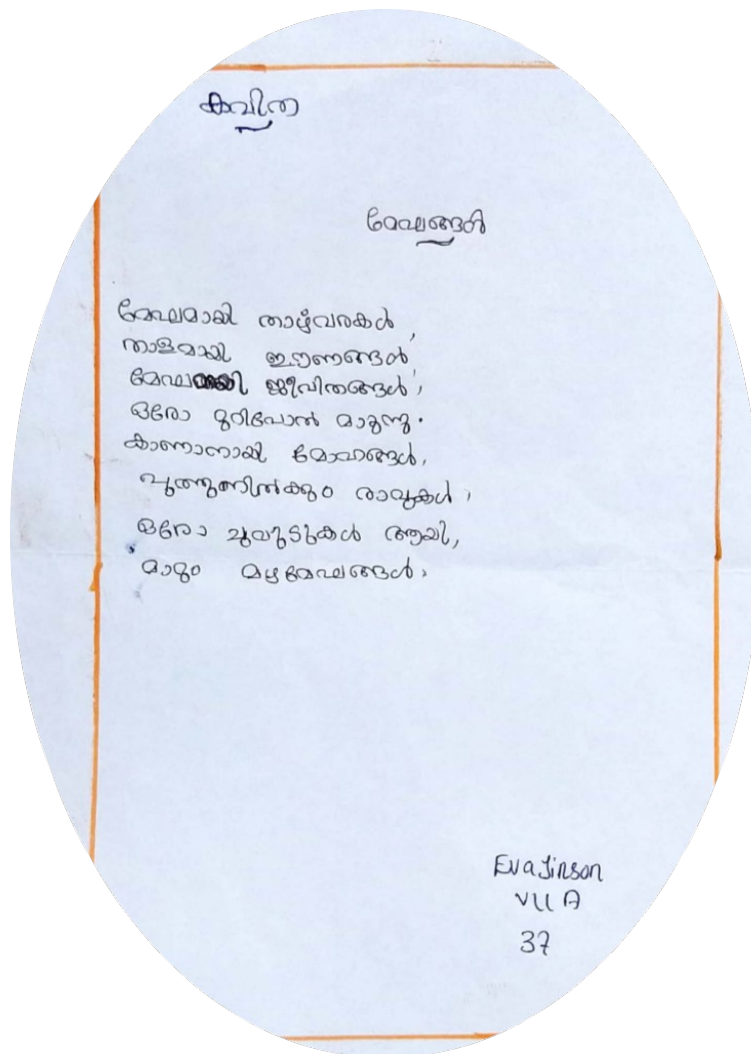 കവിത
മേഘങ്ങൾ
മേഘമായി താഴ്വരകൾ,
താളമായി ഈണങ്ങൾ,
മേഘമായി ജീവിതങ്ങൾ,
ഒരോ മുറിപോൽ മാറുന്നു.
കാണാനായി മോഹങ്ങൾ,
പൂത്തുനിൽക്കും രാവുകൾ,
ഒരോ ചുവടുകൾ ആയി,
മാറും മഴമേഘങ്ങൾ,
Eva Jinson
VII A
37